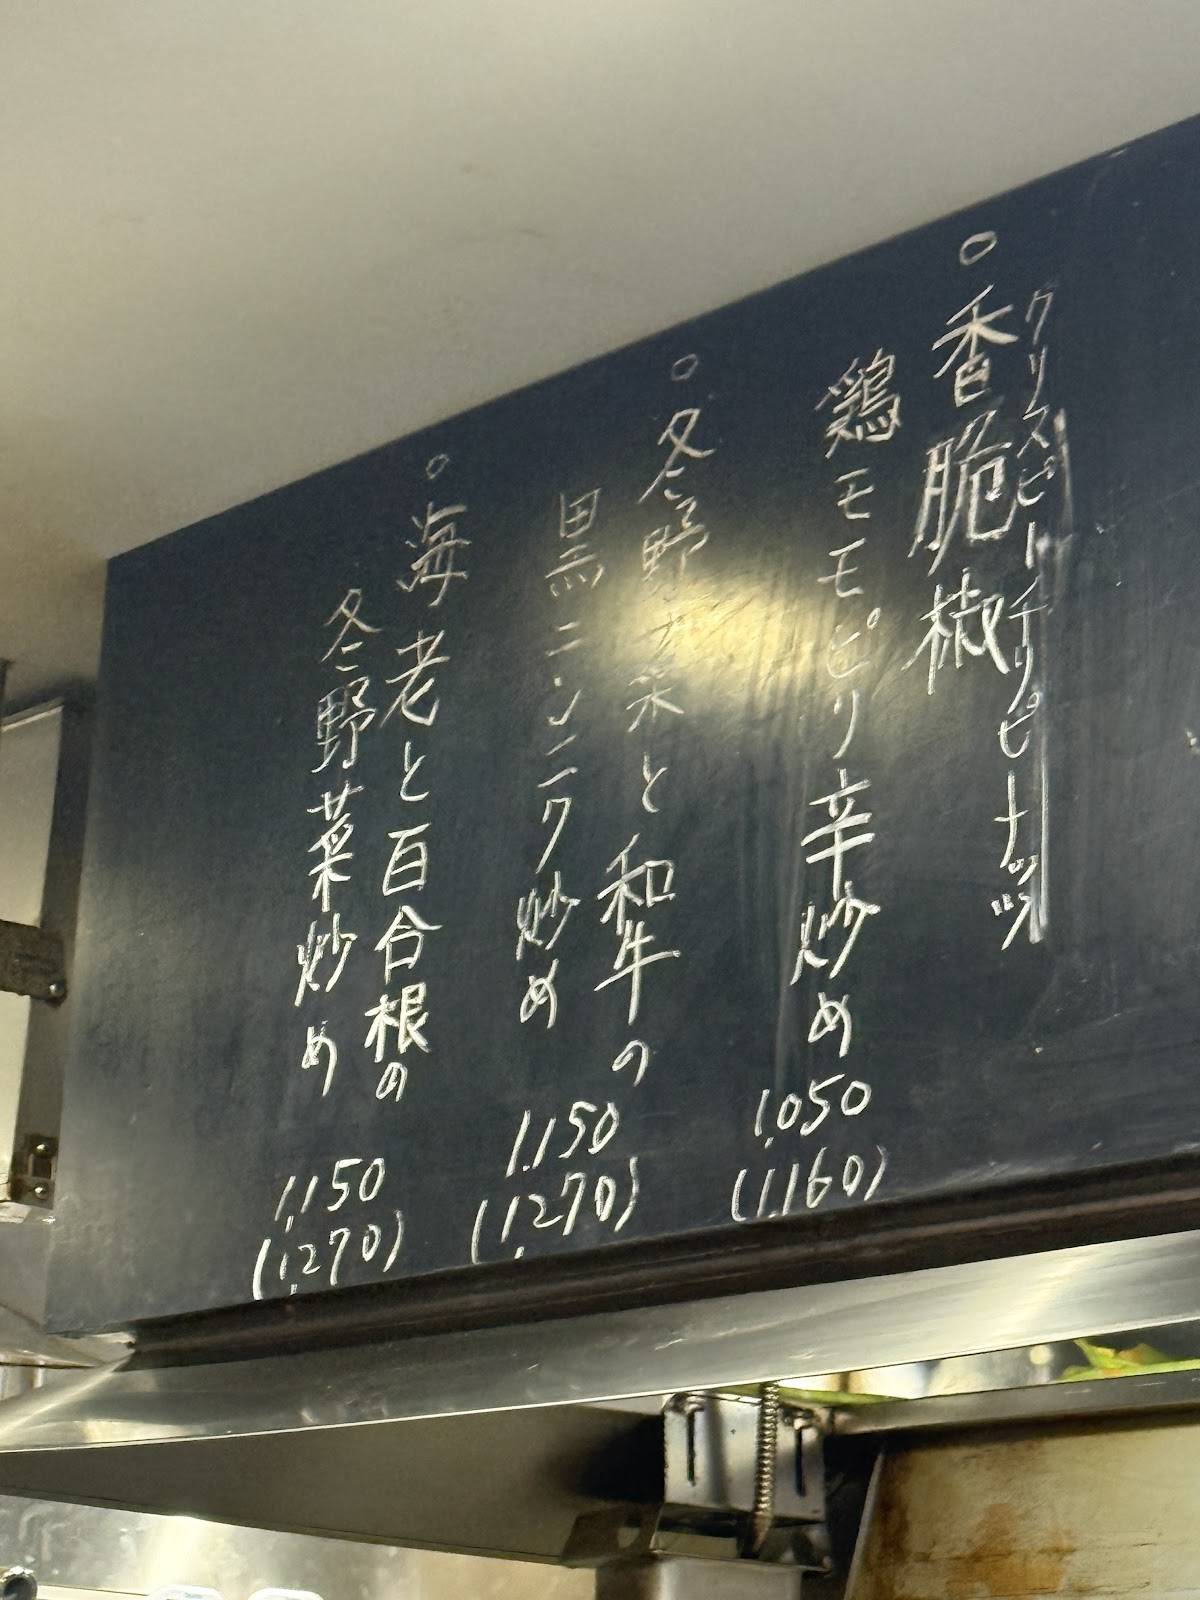 クリスピーチリピーナッツ
○香脆椒
鶏モモピリ辛炒め
1,050
(1,160)
○冬野菜と和牛の
黒ニンニク炒め
1,150
(1,270)
○海老と百合根の
冬野菜炒め
1,150
(1,270)